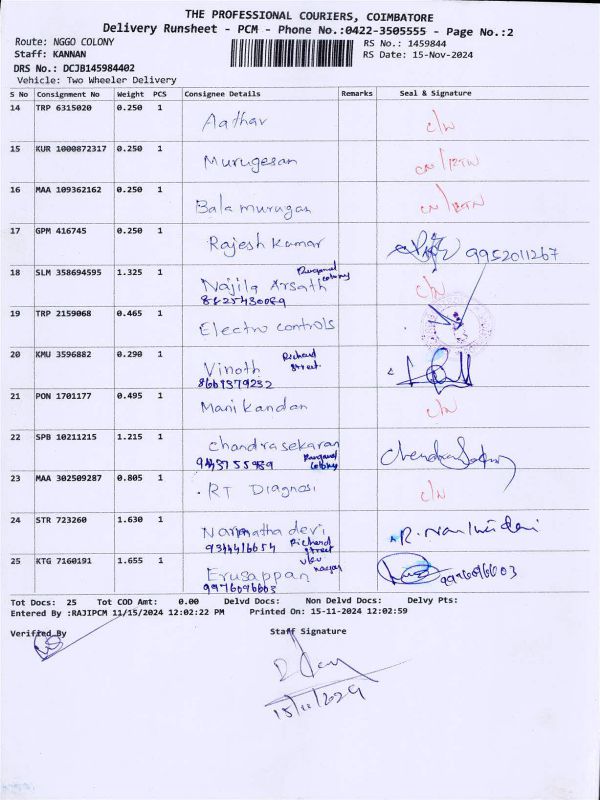 THE PROFESSIONAL COURIERS, COIMBATORE
Delivery Runsheet - PCM - Phone No.:0422-3505555 - Page No.:2
Route: NGGO COLONY RS No.: 1459844
Staff: KANNAN RS Date: 15-Nov-2024
DRS No.: DCJB145984402
Vehicle: Two Wheeler Delivery
S No Consignment No Weight PCS Consignee Details Remarks Seal & Signature
14 TRP 6315020 0.250 1
Aathav C/N
15 KUR 1000872317 0.250 1
Murugesan CN/RTN
16 MAA 109362162 0.250 1
Balamurugan CN/RTN
17 GPM 416745 0.250 1
Rajesh Kumar 9952011267
18 SLM 358694595 1.325 1
Najila Arsath colony C/N
19 TRP 2159068 0.465 1
Electro controls
20 KMU 3596882 0.290 1
Vinoth Richard street
8661379232
21 PON 1701177 0.495 1
Manikandan C/N
22 SPB 10211215 1.215 1
Chandrasekaran
colony
23 MAA 302509287 0.805 1
RT Diagnosi C/N
24 STR 723260 1.630 1
Narmatha devi
9344416654 Richard street
25 KTG 7160191 1.655 1
vkv nagar
Erusappan 9976096603
9976096603
Tot Docs: 25 Tot COD Amt: 0.00 Delvd Docs: Non Delvd Docs: Delvy Pts:
Entered By :RAJIPCM 11/15/2024 12:02:22 PM Printed On: 15-11-2024 12:02:59
Verified By Staff Signature
15/11/2024